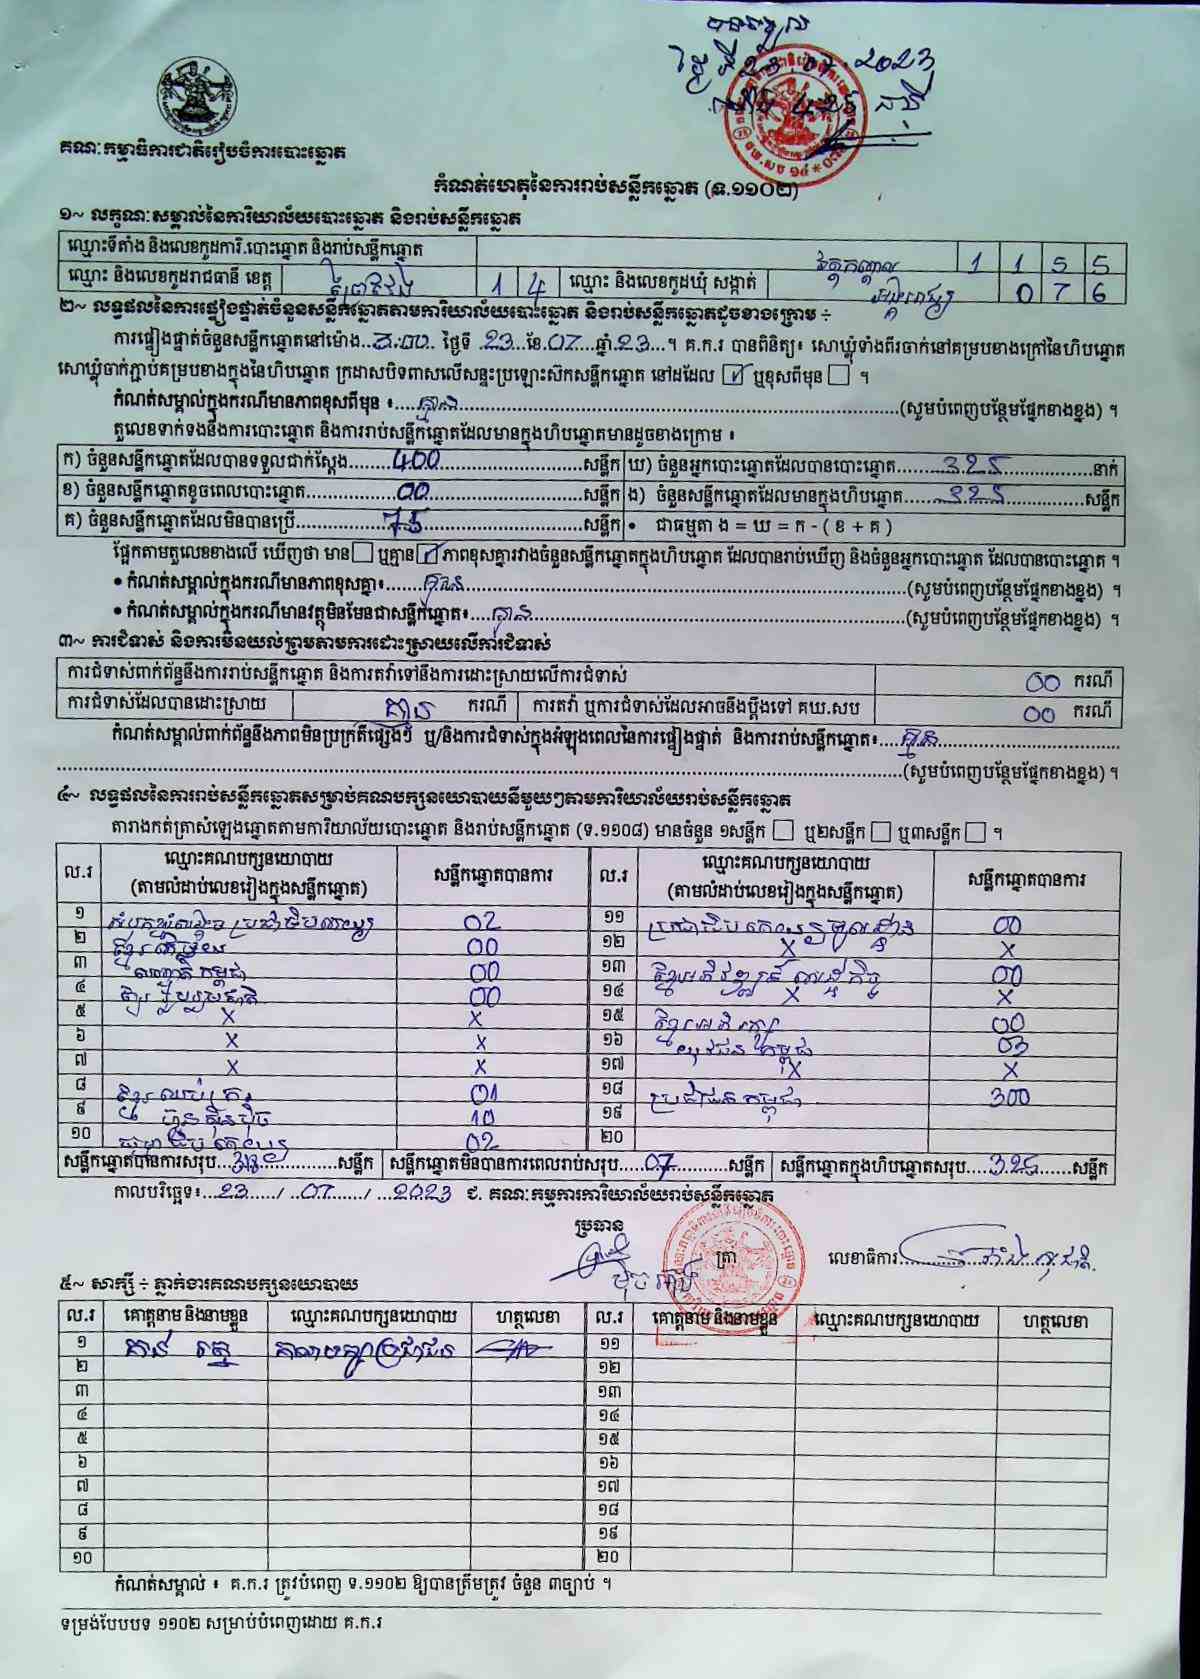 បានទទួល
ថ្ងៃទី 23.07.2023
គណៈកម្មាធិការជាតិរៀបចំការបោះឆ្នោត
កំណត់ហេតុនៃការរាប់សន្លឹកឆ្នោត (ទ.១១០២)
១~ លក្ខណៈសម្គាល់នៃការិយាល័យបោះឆ្នោត និងរាប់សន្លឹកឆ្នោត
ឈ្មោះទីតាំង និងលេខកូដការិ.បោះឆ្នោត និងរាប់សន្លឹកឆ្នោត វត្តកណ្ដាល 1 1 5 5
ឈ្មោះ និងលេខកូដរាជធានី ខេត្ត ព្រៃវែង 1 4 ឈ្មោះ និងលេខកូដឃុំ សង្កាត់ 0 7 6
២~ លទ្ធផលនៃការផ្ទៀងផ្ទាត់ចំនួនសន្លឹកឆ្នោតតាមការិយាល័យបោះឆ្នោត និងរាប់សន្លឹកឆ្នោតដូចខាងក្រោម ÷
ការផ្ទៀងផ្ទាត់ចំនួនសន្លឹកឆ្នោតនៅម៉ោង..3.00. ថ្ងៃទី .23...ខែ.07....ឆ្នាំ.23....។ គ.ក.រ បានពិនិត្យ៖ សោឃ្លុំទាំងពីរចាក់នៅគម្របខាងក្រៅនៃហិបឆ្នោត
សោឃ្លុំចាក់ភ្ជាប់គម្របខាងក្នុងនៃហិបឆ្នោត ក្រដាសបិទពាសលើសន្ទះប្រឡោះស៊កសន្លឹកឆ្នោត នៅដដែល ☑ ឬខុសពីមុន ☐ ។
កំណត់សម្គាល់ក្នុងករណីមានភាពខុសពីមុន ៖....គ្មាន....(សូមបំពេញបន្ថែមផ្នែកខាងខ្នង) ។
តួលេខទាក់ទងនឹងការបោះឆ្នោត និងការរាប់សន្លឹកឆ្នោតដែលមានក្នុងហិបឆ្នោតមានដូចខាងក្រោម ៖
ក) ចំនួនសន្លឹកឆ្នោតដែលបានទទួលជាក់ស្តែង.......400.......សន្លឹក ឃ) ចំនួនអ្នកបោះឆ្នោតដែលបានបោះឆ្នោត.......325.......នាក់
ខ) ចំនួនសន្លឹកឆ្នោតខូចពេលបោះឆ្នោត.......00.......សន្លឹក ង) ចំនួនសន្លឹកឆ្នោតដែលមានក្នុងហិបឆ្នោត.......325.......សន្លឹក
គ) ចំនួនសន្លឹកឆ្នោតដែលមិនបានប្រើ.......75.......សន្លឹក • ជាធម្មតា ង = ឃ = ក - ( ខ + គ )
ផ្អែកតាមតួលេខខាងលើ ឃើញថា មាន ☐ ឬគ្មាន ☑ ភាពខុសគ្នារវាងចំនួនសន្លឹកឆ្នោតក្នុងហិបឆ្នោត ដែលបានរាប់ឃើញ និងចំនួនអ្នកបោះឆ្នោត ដែលបានបោះឆ្នោត ។
• កំណត់សម្គាល់ក្នុងករណីមានភាពខុសគ្នា៖.......គ្មាន.......(សូមបំពេញបន្ថែមផ្នែកខាងខ្នង) ។
• កំណត់សម្គាល់ក្នុងករណីមានវត្ថុមិនមែនជាសន្លឹកឆ្នោត៖...គ្មាន.......(សូមបំពេញបន្ថែមផ្នែកខាងខ្នង) ។
៣~ ការជំទាស់ និងការមិនយល់ព្រមតាមការដោះស្រាយលើការជំទាស់
ការជំទាស់ពាក់ព័ន្ធនឹងការរាប់សន្លឹកឆ្នោត និងការតវ៉ាទៅនឹងការដោះស្រាយលើការជំទាស់ 00 ករណី
ការជំទាស់ដែលបានដោះស្រាយ គ្មាន ករណី ការតវ៉ា ឬការជំទាស់ដែលអាចនឹងប្តឹងទៅ គឃ.សប 00 ករណី
កំណត់សម្គាល់ពាក់ព័ន្ធនឹងភាពមិនប្រក្រតីផ្សេងៗ ឬ/និងការជំទាស់ក្នុងអំឡុងពេលនៃការផ្ទៀងផ្ទាត់ និងការរាប់សន្លឹកឆ្នោត៖....គ្មាន.......
.......(សូមបំពេញបន្ថែមផ្នែកខាងខ្នង) ។
៤~ លទ្ធផលនៃការរាប់សន្លឹកឆ្នោតសម្រាប់គណបក្សនយោបាយនីមួយៗតាមការិយាល័យរាប់សន្លឹកឆ្នោត
តារាងកត់ត្រាសំឡេងឆ្នោតតាមការិយាល័យបោះឆ្នោត និងរាប់សន្លឹកឆ្នោត (ទ.១១០៨) មានចំនួន ១សន្លឹក ☐ ឬ២សន្លឹក ☐ ឬ៣សន្លឹក ☐ ។
ល.រ ឈ្មោះគណបក្សនយោបាយ (តាមលំដាប់លេខរៀងក្នុងសន្លឹកឆ្នោត) សន្លឹកឆ្នោតបានការ ល.រ ឈ្មោះគណបក្សនយោបាយ (តាមលំដាប់លេខរៀងក្នុងសន្លឹកឆ្នោត) សន្លឹកឆ្នោតបានការ
១ សំបុកឃ្មុំសង្គមប្រជាធិបតេយ្យ 02 ១១ ប្រជាធិបតេយ្យមូលដ្ឋាន 00
២ ខ្មែរតែមួយ 00 ១២ X X
៣ សញ្ជាតិកម្ពុជា 00 ១៣ ខ្មែរអភិវឌ្ឍន៍សេដ្ឋកិច្ច 00
៤ ខ្មែររួបរួមជាតិ 00 ១៤ X X
៥ X X ១៥ ខ្មែរអភិរក្ស 00
៦ X X ១៦ យុវជនកម្ពុជា 03
៧ X X ១៧ X X
៨ ខ្មែរឈប់ក្រ 01 ១៨ ប្រជាជនកម្ពុជា 300
៩ ហ៊្វុនស៊ិនប៉ិច 10 ១៩
១០ ធម្មាធិបតេយ្យ 02 ២០
សន្លឹកឆ្នោតបានការសរុប..318.......សន្លឹក សន្លឹកឆ្នោតមិនបានការពេលរាប់សរុប....07.......សន្លឹក សន្លឹកឆ្នោតក្នុងហិបឆ្នោតសរុប....325......សន្លឹក
កាលបរិច្ឆេទ៖..23....../..07....../...2023 ជ. គណៈកម្មការការិយាល័យរាប់សន្លឹកឆ្នោត
ប្រធាន
ត្រា លេខាធិការ
៥~ សាក្សី ÷ ភ្នាក់ងារគណបក្សនយោបាយ
ល.រ គោត្តនាម និងនាមខ្លួន ឈ្មោះគណបក្សនយោបាយ ហត្ថលេខា ល.រ គោត្តនាម និងនាមខ្លួន ឈ្មោះគណបក្សនយោបាយ ហត្ថលេខា
១ គណបក្សប្រជាជន ១១
២ ១២
៣ ១៣
៤ ១៤
៥ ១៥
៦ ១៦
៧ ១៧
៨ ១៨
៩ ១៩
១០ ២០
កំណត់សម្គាល់ ៖ គ.ក.រ ត្រូវបំពេញ ទ.១១០២ ឱ្យបានត្រឹមត្រូវ ចំនួន ៣ច្បាប់ ។
ទម្រង់បែបបទ ១១០២ សម្រាប់បំពេញដោយ គ.ក.រ